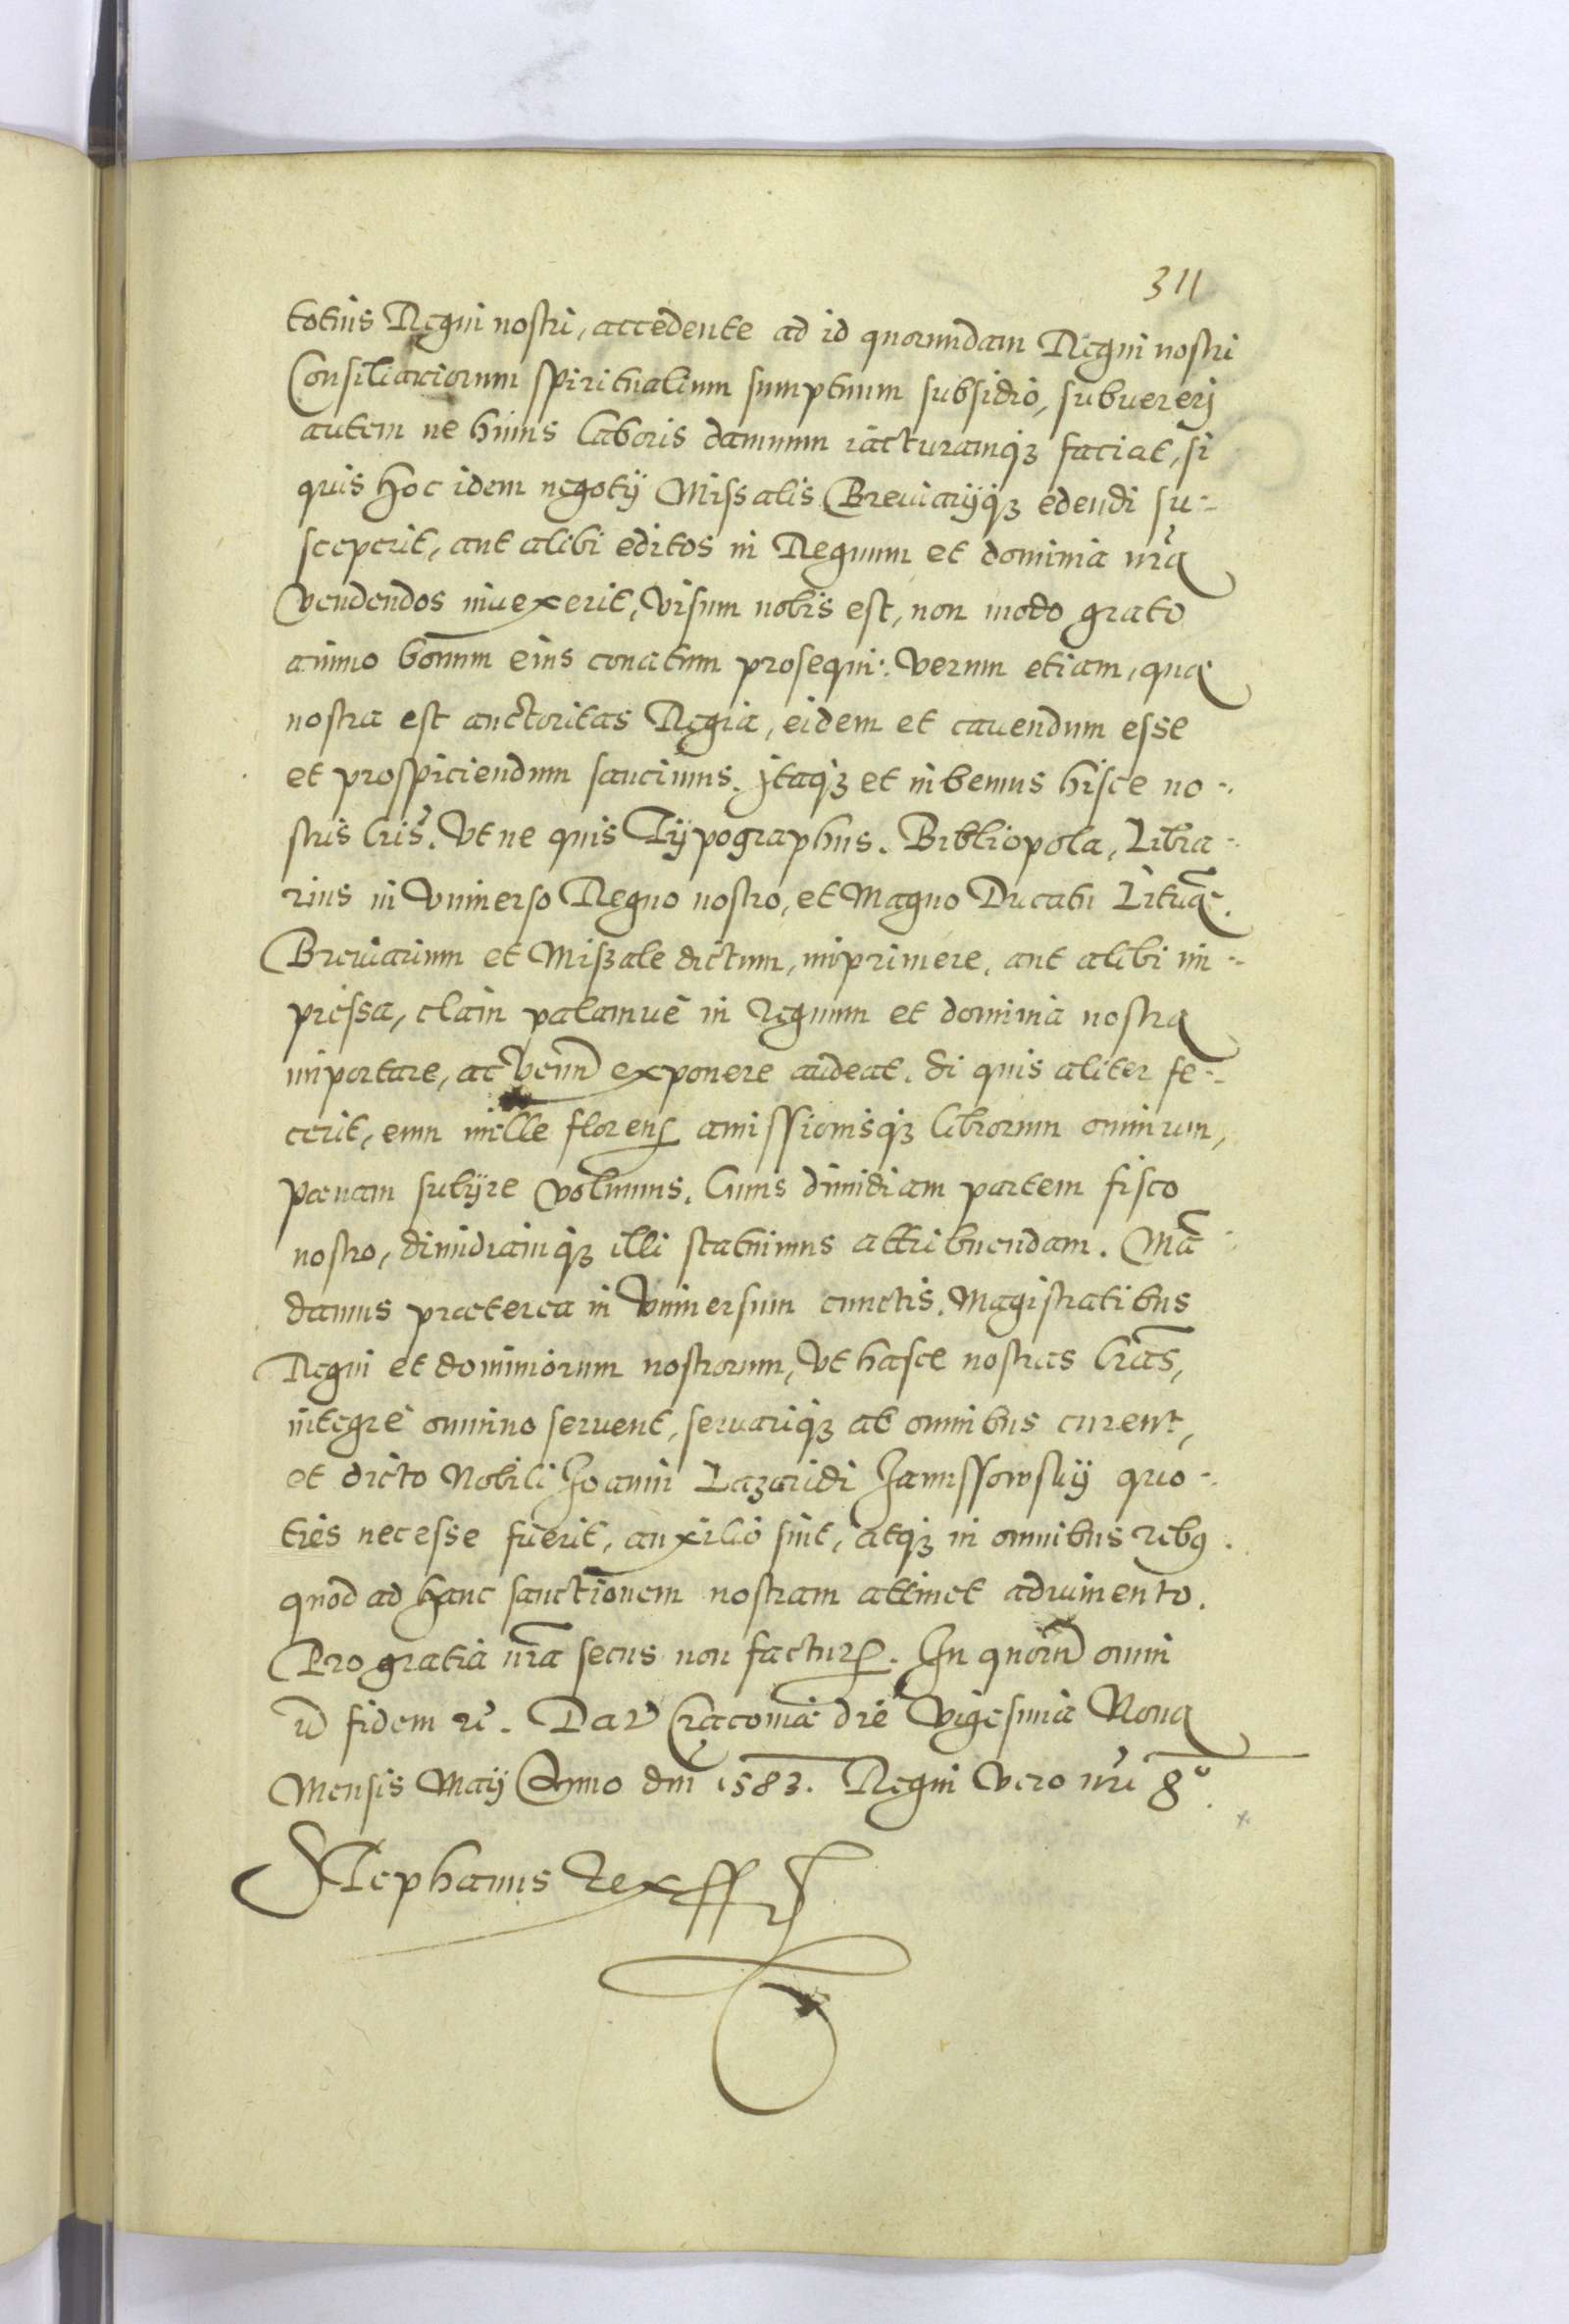 311
totius Regni nostri, accedente ad id quorumdam Regni nostri
Consiliariorum spiritualium sumptuum subsidio, subvererj
autem ne huius laboris damnum iacturamq3 faciat, si
quis hoc idem negotÿ Missalis Breuiarÿq3 edendi su-
sceperit, aut alibi editos in Regnum et dominia nr̃a
vendendos inuexerit, visum nobis est, non modo grato
animo bonum eius conatum prosequi: verum etiam, qua
nostra est auctoritas Regia, eidem et cauendum esse
et prospiciendum sancimus. Jtaq3 et iubemus hisce no-
stris lris̃. Vt ne quis Tÿpographus. Bibliopola, Libra-
rius in Vniuerso Regno nostro, et Magno Ducatu Lituã.
Breuiarium et Miszale dictum, imprimere, aut alibi im-
pressa, clam palamuè in regnum et dominia nostra
importare, ac venũ exponere audeat. Si quis aliter fe-
cerit, eum mille floren. amissionisq3 librorum omnium,
pœnam subÿre volumus. Cuius dimidiam partem fisco
nostro, dimidiamq3 illi statuimus attribuendam. Mã-
damus præterea in Vniuersum cunctis. Magistratibus
Regni et dominiorum nostrorum, Vt hasce nostras lr̃as,
integrè omnino seruent, seruariq3 ab omnibus curent,
et dicto Nobili Joanni Lazaridi Janussowskÿ quo-
ties necesse fuerit, auxilio sint, atq3 in omnibus reb9.
quod ad hanc sanctionem nostram attinet adiumento.
Pro gratia nr̃a secus non factur. In quorũ omniũ
fidem r̃. Dat Cracouiæ die Vigesima Nona
Mensis Maÿ Anno dnĩ 1583. Regni Vero nr̃i 8º.
Stephanus Rex ss